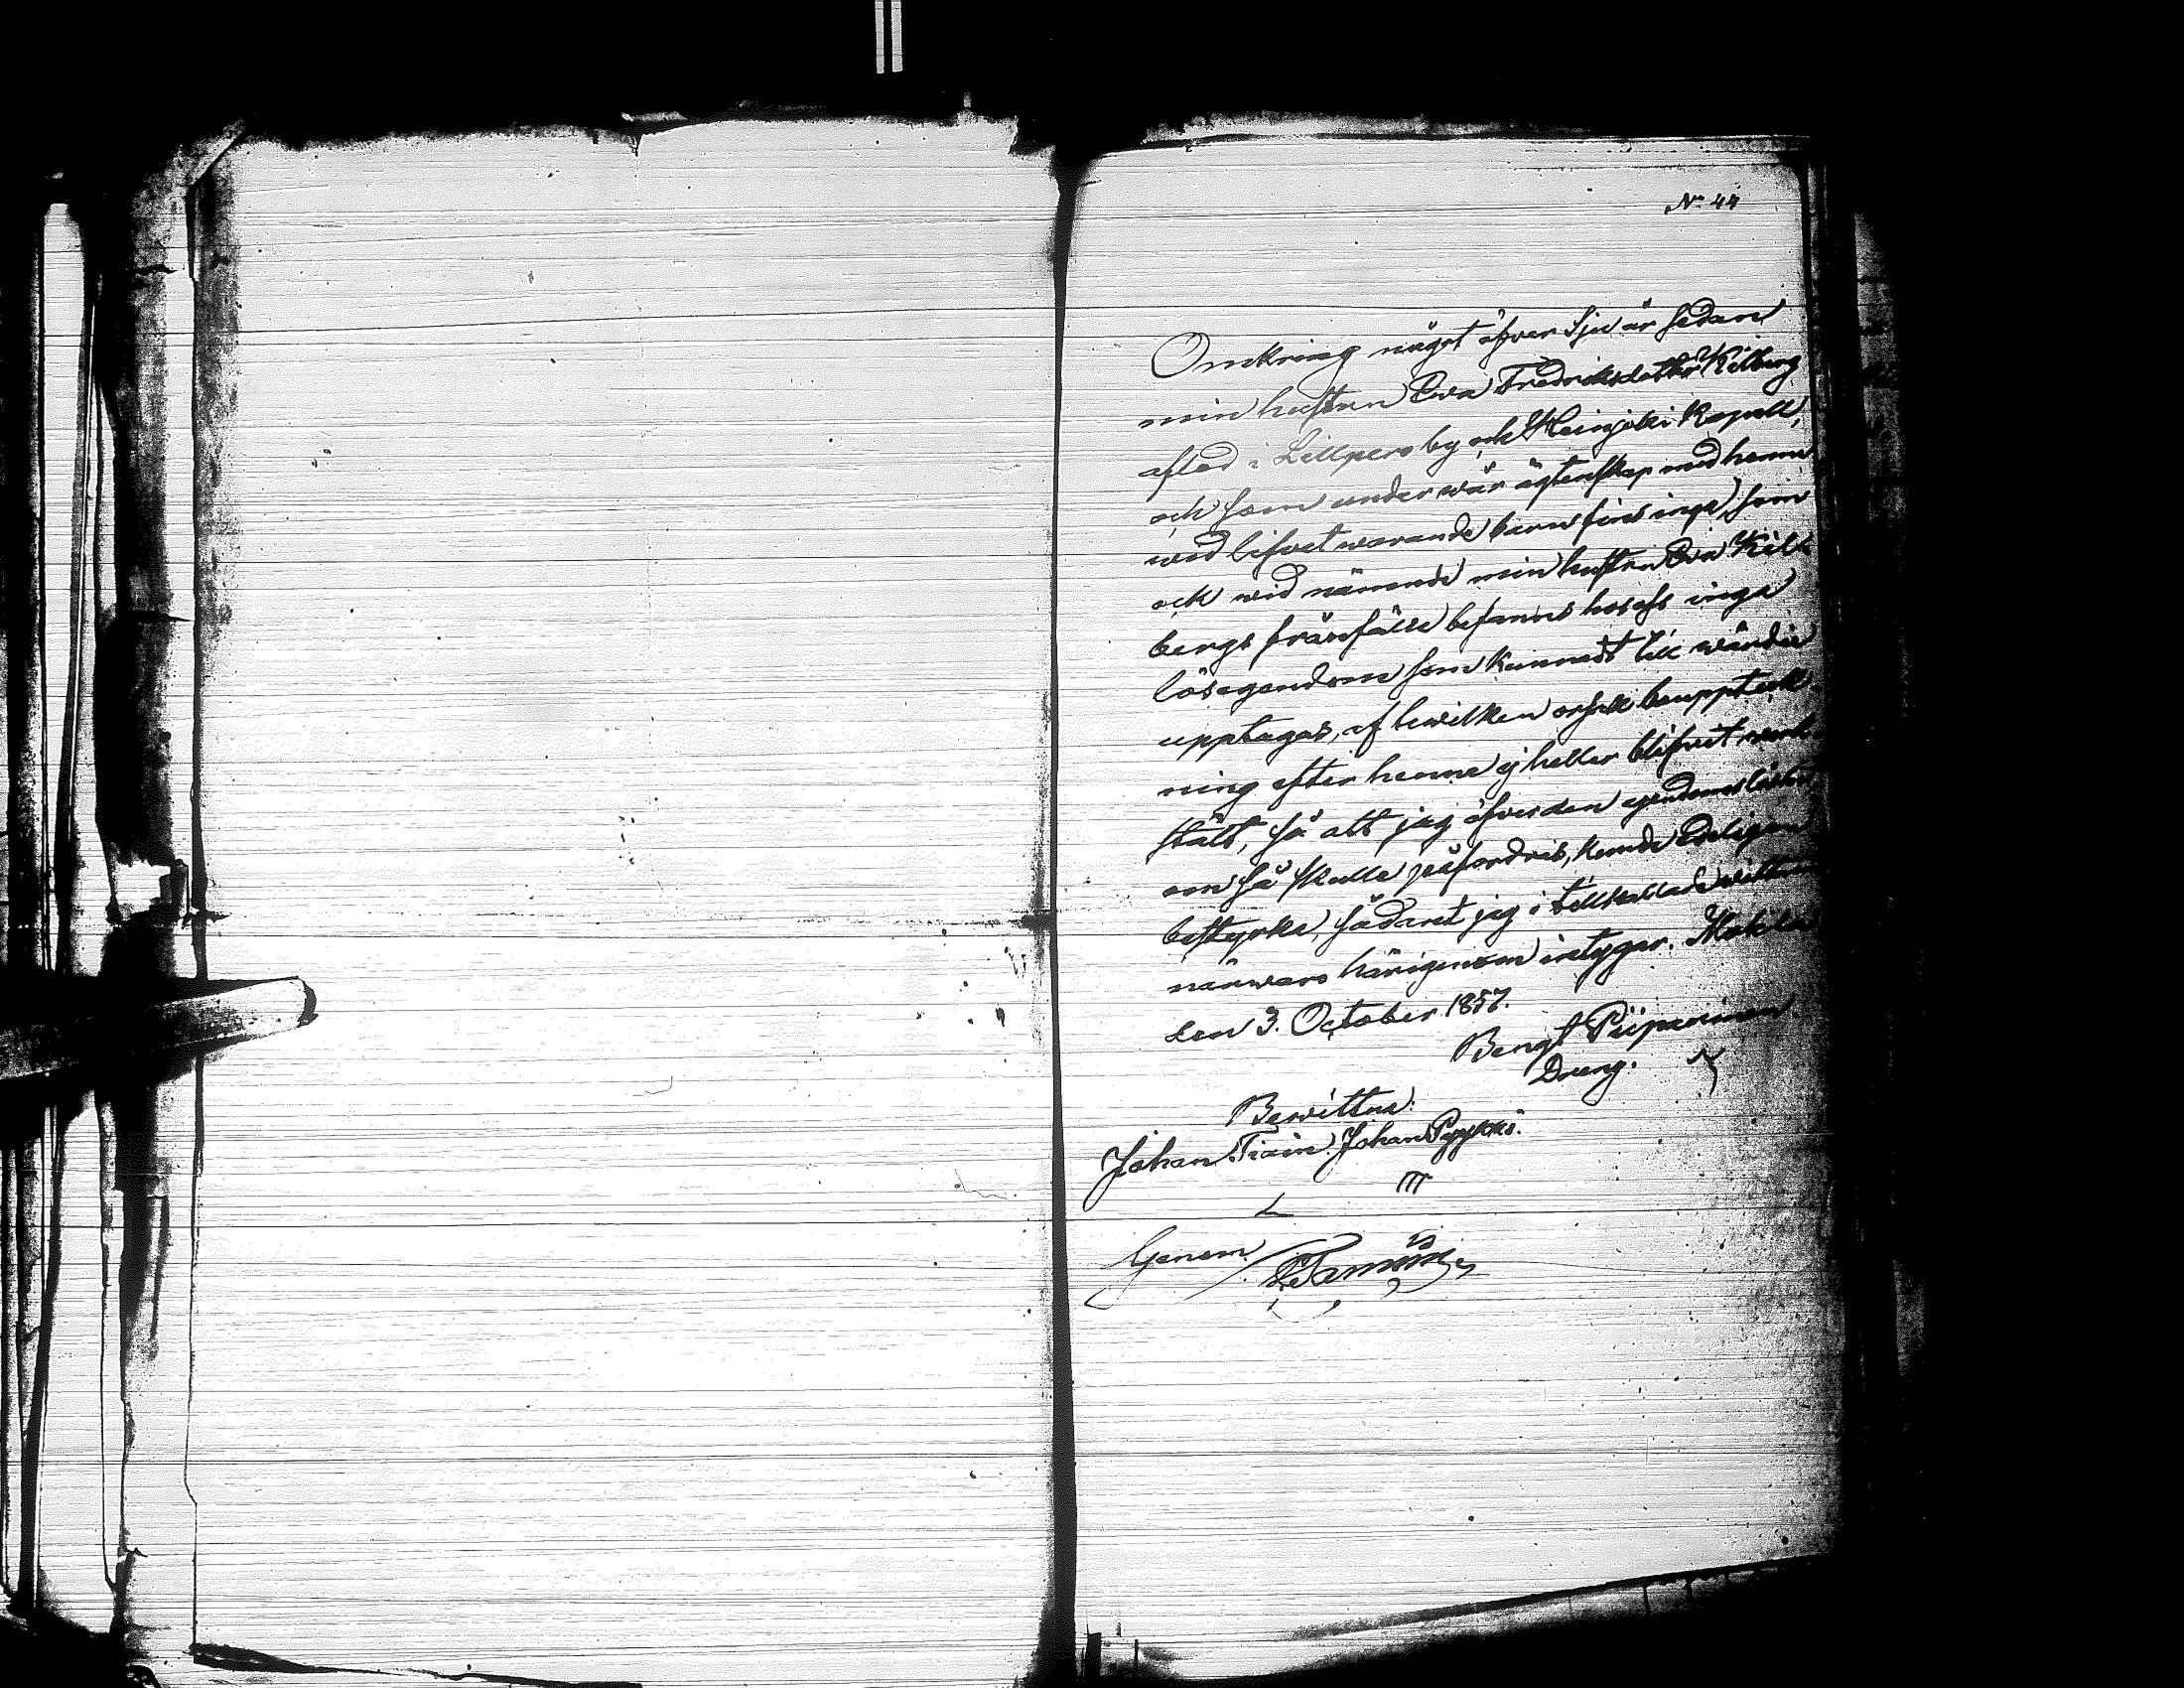 No 44
Omkring något öfver sju år sedan
min hustru Ewa Fredriksdotter Kilberg
afled i Lillpero by och Heinjoki Kapell,
och som under wår ägtenskap med henne
wid lifvet warande barn fins inga, som
ock wid nämnde min hustru Ewa Kil-
bergs frånfälle befanns hos oss inga
lösegendom som kunnat till wärdie
upptagas, af hwilken orsak bouppteck-
ning efter henne ej heller blifvit werk-
stält, så att jag öfver den egendomslöshet,
om så skulle påfordras, kunde edeligen
bestyrka, sådant jag i tillkallade wittnens
närwaro härigenom intygar.
den 3. October 1857.
Bengt Piiparinen
Dreng.
Bewittna:
Johan Tiain. Johan Pyykkö.
Genom